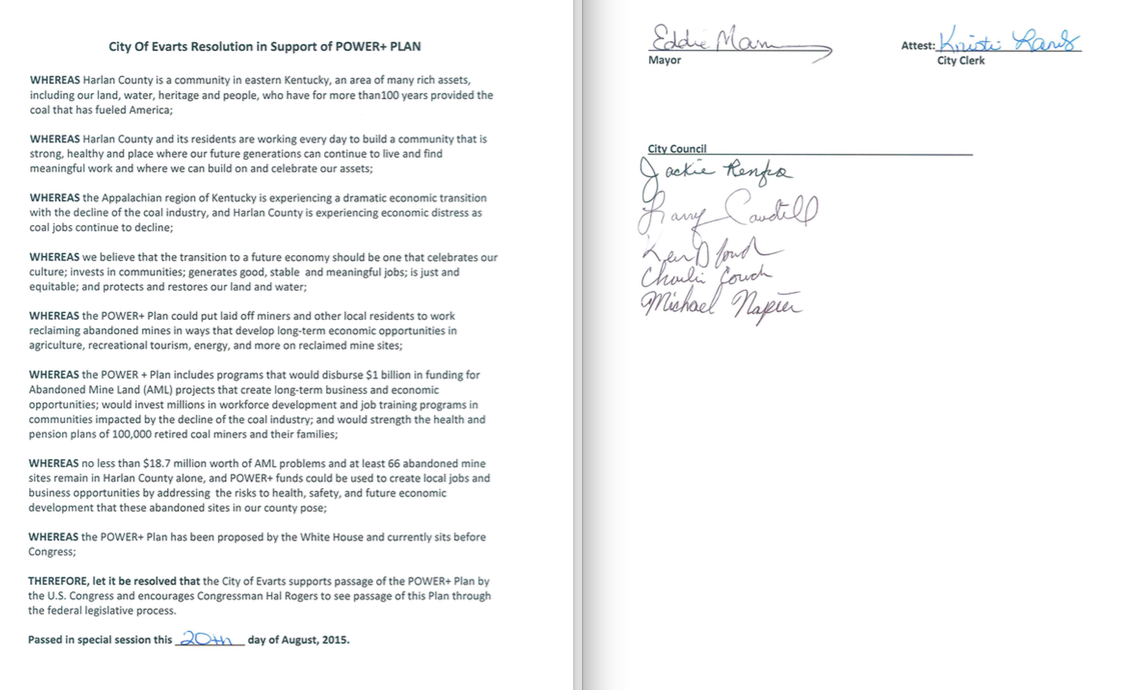 City Of Evarts Resolution in Support of POWER+ PLAN
WHEREAS Harlan County is a community in eastern Kentucky, an area of many rich assets,
including our land, water, heritage and people, who have for more than100 years provided the
coal that has fueled America;
WHEREAS Harlan County and its residents are working every day to build a community that is
strong, healthy and place where our future generations can continue to live and find
meaningful work and where we can build on and celebrate our assets;
WHEREAS the Appalachian region of Kentucky is experiencing a dramatic economic transition
with the decline of the coal industry, and Harlan County is experiencing economic distress as
coal jobs continue to decline;
WHEREAS we believe that the transition to a future economy should be one that celebrates our
culture; invests in communities; generates good, stable and meaningful jobs; is just and
equitable; and protects and restores our land and water;
WHEREAS the POWER+ Plan could put laid off miners and other local residents to work
reclaiming abandoned mines in ways that develop long-term economic opportunities in
agriculture, recreational tourism, energy, and more on reclaimed mine sites;
WHEREAS the POWER + Plan includes programs that would disburse $1 billion in funding for
Abandoned Mine Land (AML) projects that create long-term business and economic
opportunities; would invest millions in workforce development and job training programs in
communities impacted by the decline of the coal industry; and would strength the health and
pension plans of 100,000 retired coal miners and their families;
WHEREAS no less than $18.7 million worth of AML problems and at least 66 abandoned mine
sites remain in Harlan County alone, and POWER+ funds could be used to create local jobs and
business opportunities by addressing the risks to health, safety, and future economic
development that these abandoned sites in our county pose;
WHEREAS the POWER+ Plan has been proposed by the White House and currently sits before
Congress;
THEREFORE, let it be resolved that the City of Evarts supports passage of the POWER+ Plan by
the U.S. Congress and encourages Congressman Hal Rogers to see passage of this Plan through
the federal legislative process.
Passed in special session this 20th day of August, 2015.
Eddie
Mayor
Attest: Kristi
City Clerk
City Council
Jackie
Larry Caudill
Charlie Couch
Michael Napier